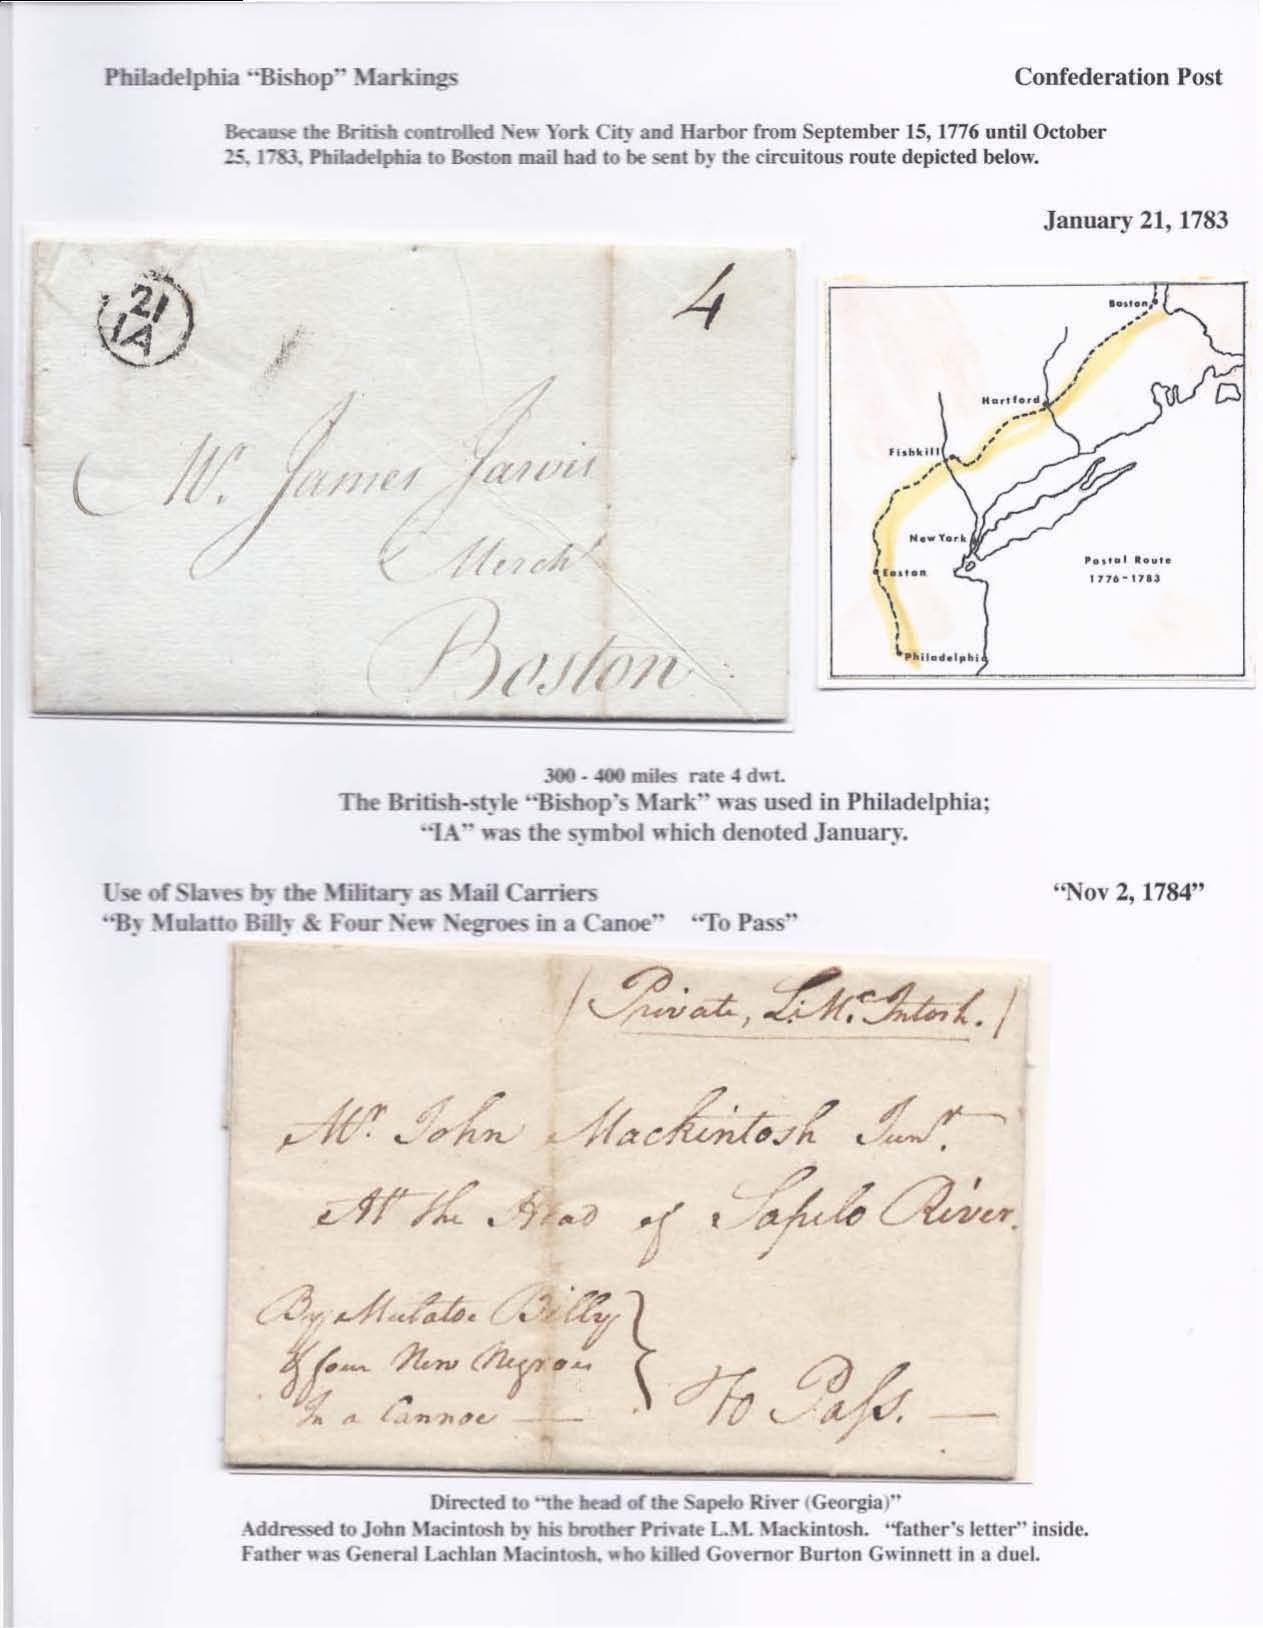 Philadelphia “Bishop” Markings
Confederation Post
Because the British controlled New York City and Harbor from September 15, 1776 until October
25, 1783, Philadelphia to Boston mail had to be sent by the circuitous route depicted below.
January 21, 1783
21
IA
4
Mr. James Jarvis
Mercht
Boston
Boston
Hartford
Fishkill
New York
Easton
Postal Route
1776-1783
Philadelphia
300 - 400 miles rate 4 dwt.
The British-style “Bishop’s Mark” was used in Philadelphia;
“IA” was the symbol which denoted January.
Use of Slaves by the Military as Mail Carriers
“Nov 2, 1784”
“By Mulatto Billy & Four New Negroes in a Canoe” “To Pass”
(Private, L. McIntosh.)
Mr. John Mackintosh Junr.
At the Head of Sapelo River.
By Mulatoe Billy
& four New Negroes
In a Cannoe —
} To Pass. —
Directed to “the head of the Sapelo River (Georgia)”
Addressed to John Macintosh by his brother Private L.M. Mackintosh. “father’s letter” inside.
Father was General Lachlan Macintosh, who killed Governor Burton Gwinnett in a duel.